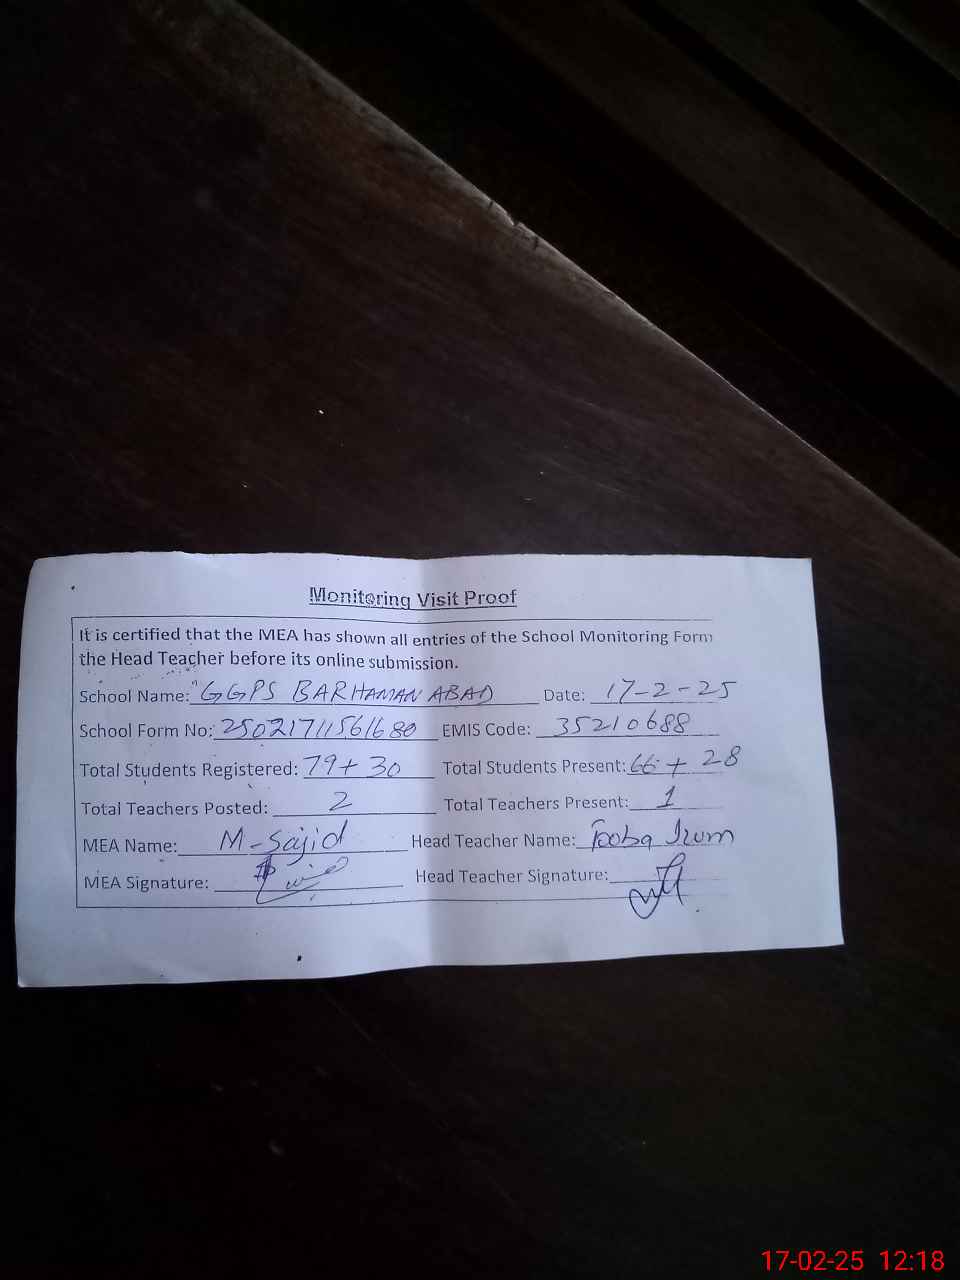 Monitoring Visit Proof
It is certified that the MEA has shown all entries of the School Monitoring Form
the Head Teacher before its online submission.
School Name: GGPS BARHAMAN ABAD Date: 17-2-25
School Form No: 25021711561680 EMIS Code: 35210688
Total Students Registered: 79+30 Total Students Present: 66+28
Total Teachers Posted: 2 Total Teachers Present: 1
MEA Name: M-Sajid Head Teacher Name: Tooba Irum
MEA Signature: Head Teacher Signature:
17-02-25 12:18